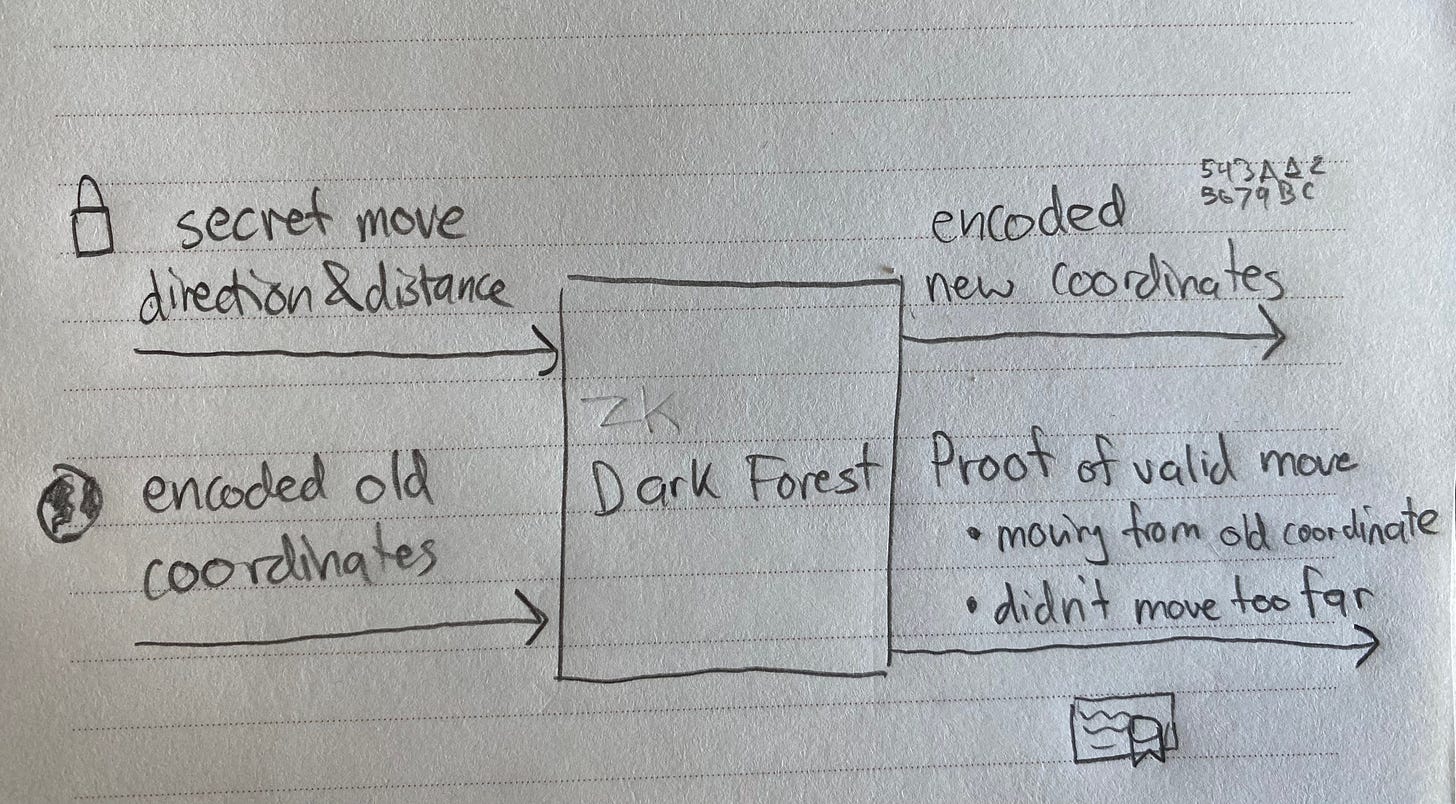 secret move
direction & distance
encoded old
coordinates
ZK
Dark Forest
encoded
new coordinates
543AA2
5679BC
Proof of valid move
• moving from old coordinate
• didn't move too far